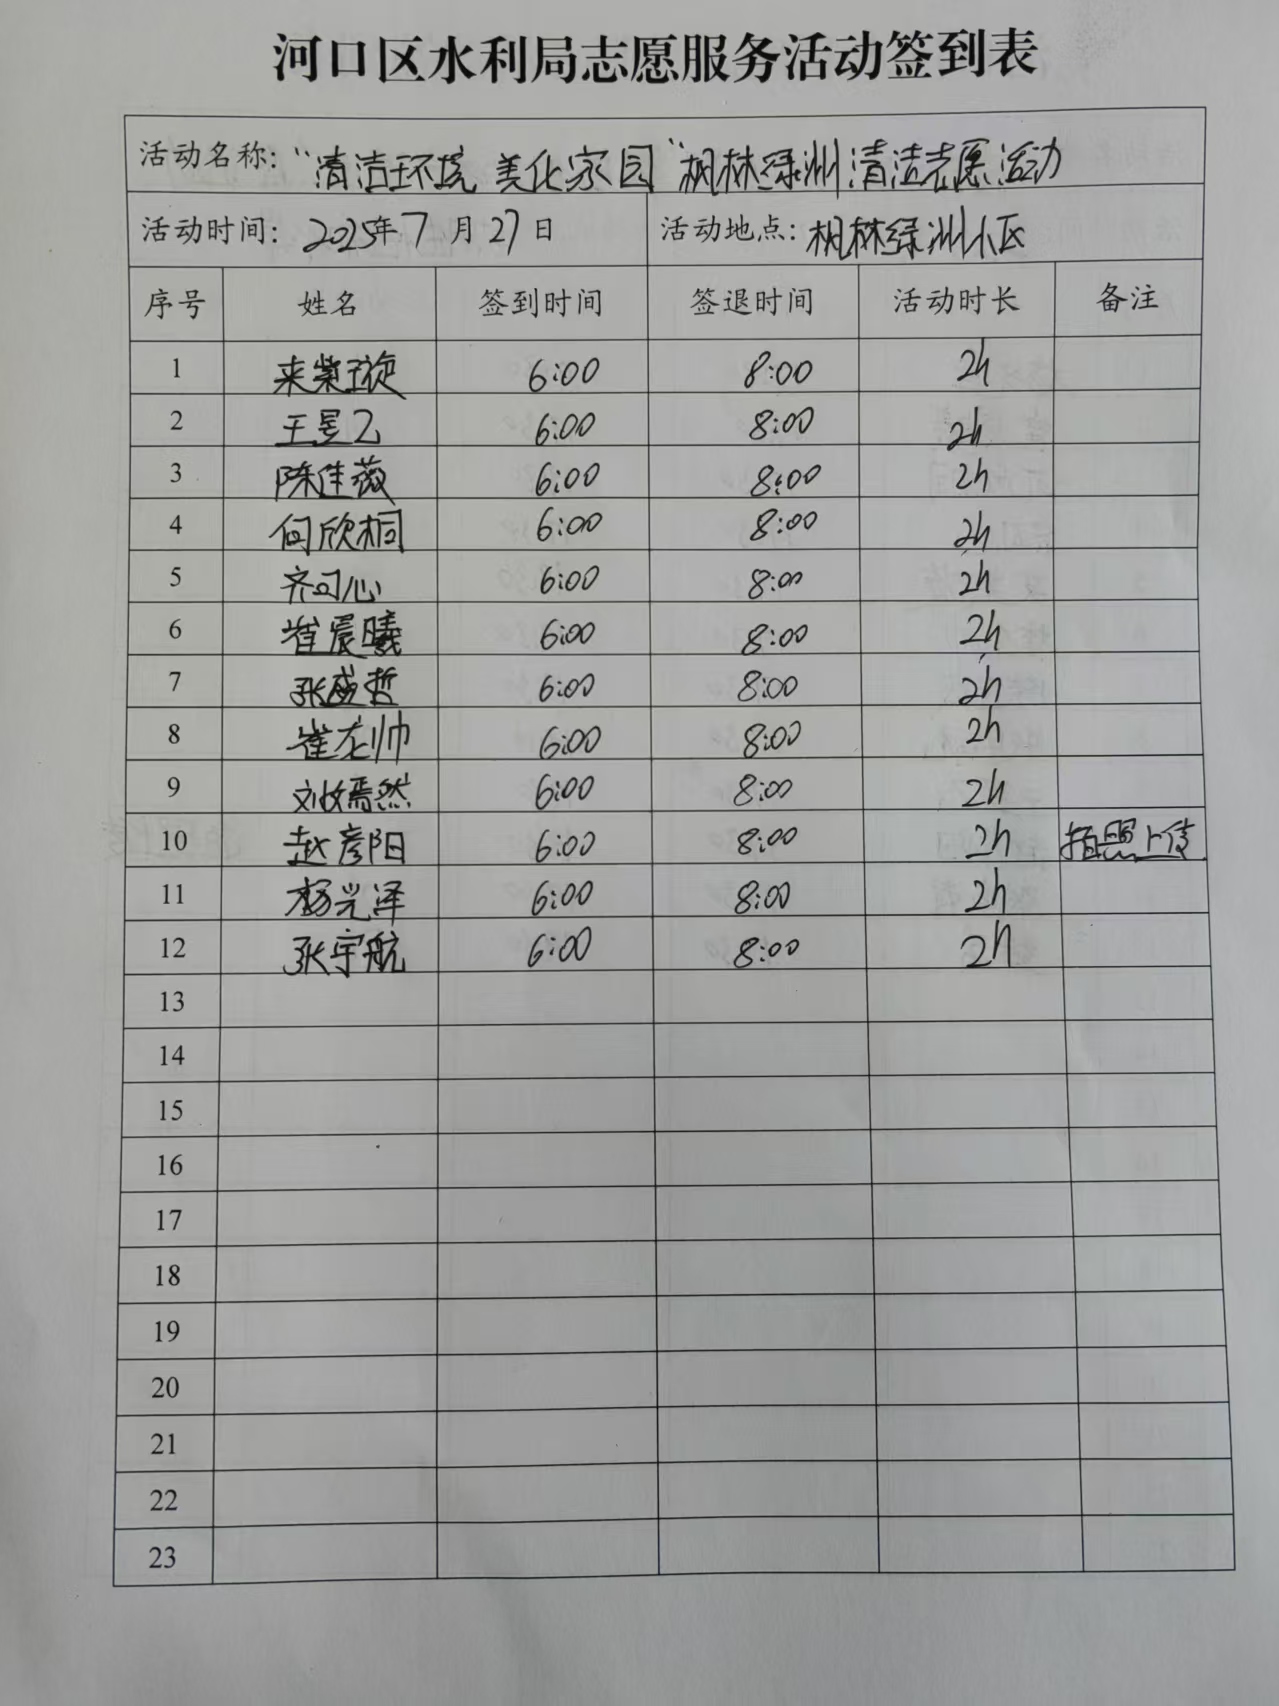 河口区水利局志愿服务活动签到表
活动名称："清洁环境 美化家园"枫林绿洲清洁志愿活动
活动时间：2025年7月27日 活动地点：枫林绿洲小区
序号 姓名 签到时间 签退时间 活动时长 备注
1 来紫璇 6:00 8:00 2h
2 王昱乙 6:00 8:00 2h
3 陈佳薇 6:00 8:00 2h
4 何欣桐 6:00 8:00 2h
5 齐可心 6:00 8:00 2h
6 崔晨曦 6:00 8:00 2h
7 张盛哲 6:00 8:00 2h
8 崔龙帅 6:00 8:00 2h
9 刘嫣然 6:00 8:00 2h
10 赵彦阳 6:00 8:00 2h 拍照上传
11 杨兴泽 6:00 8:00 2h
12 张宇航 6:00 8:00 2h
13
14
15
16
17
18
19
20
21
22
23